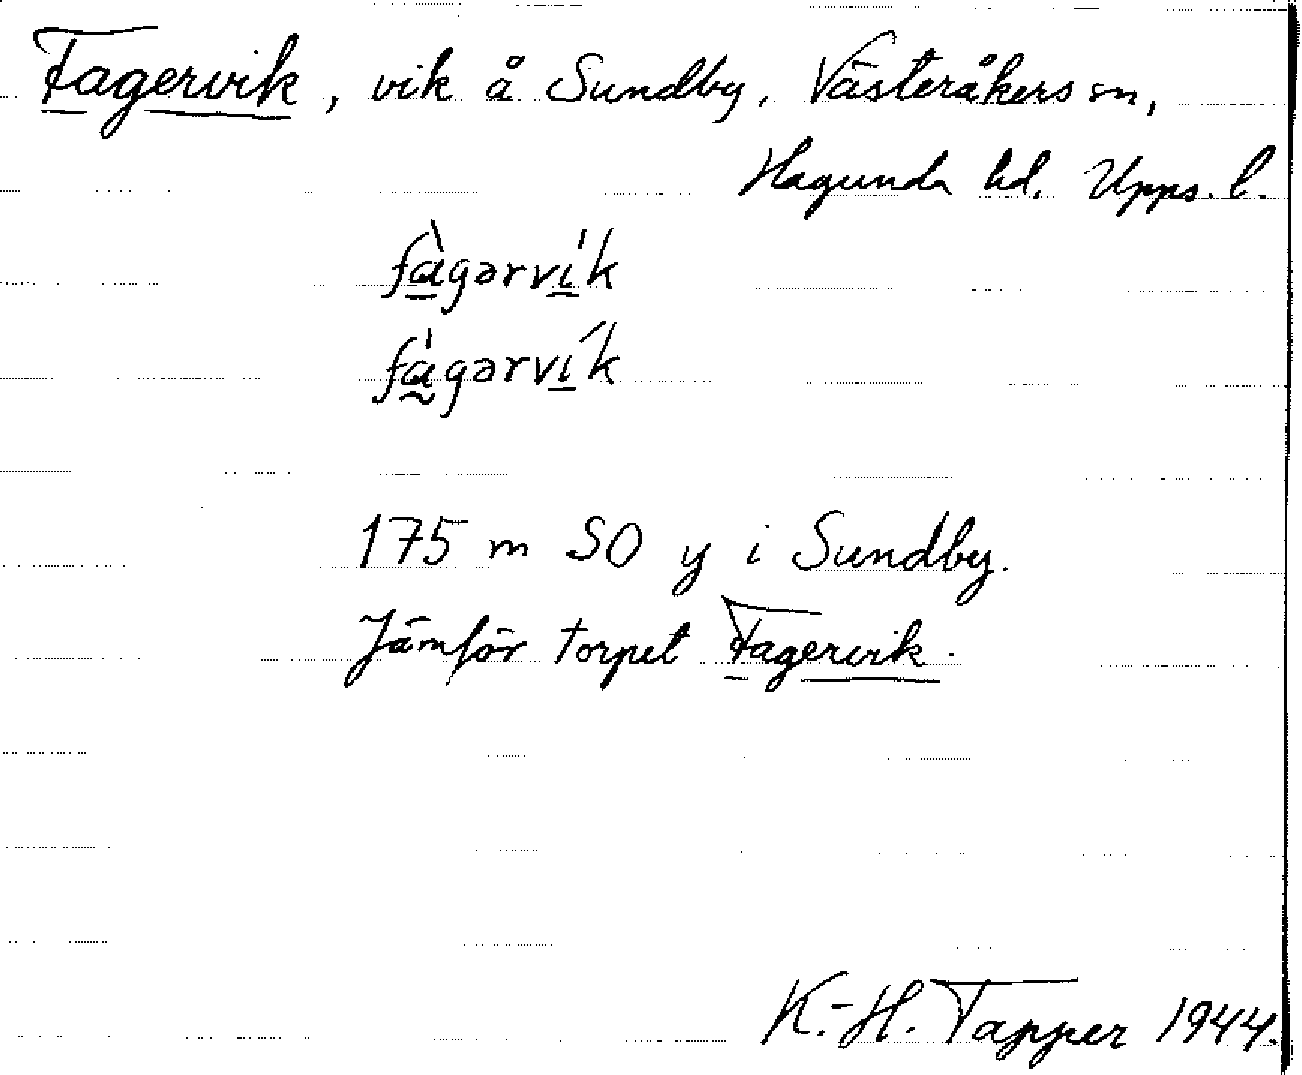 Fagervik, vik å Sundby, Västeråkers sn,
Hagunda hd. Upps. l.
fàgərvík
fàgərvík
175 m SO y i Sundby.
Jämför torpet Fagervik.
K.-H. Tapper 1944.